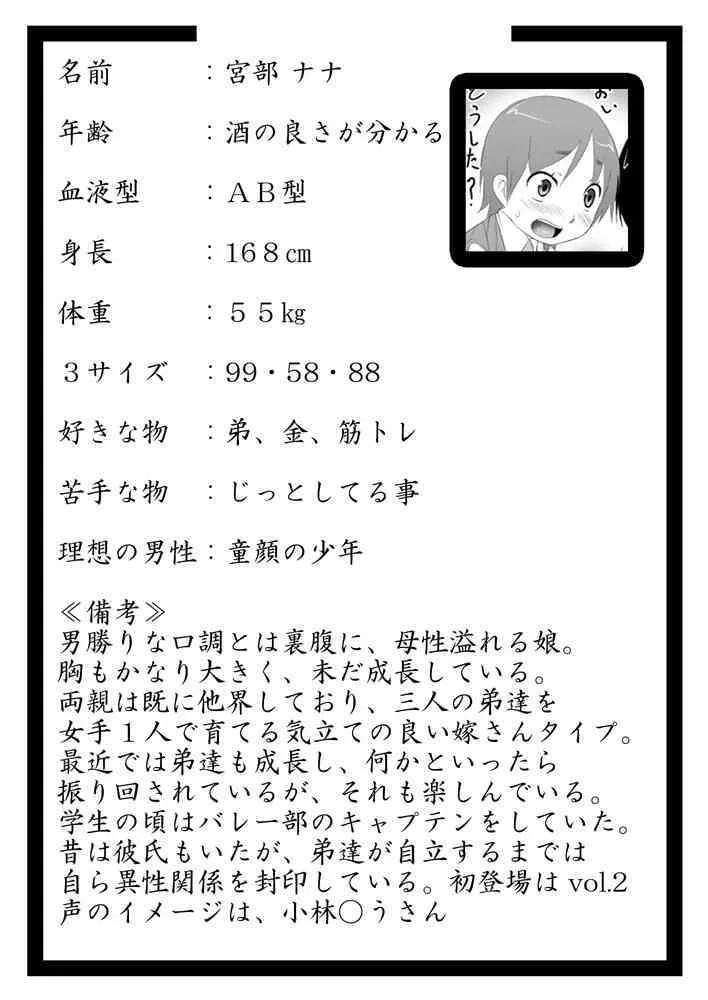 名前　　　：宮部 ナナ
おい
どうした？
年齢　　　：酒の良さが分かる
血液型　　：ＡＢ型
身長　　　：168㎝
体重　　　：５５㎏
３サイズ　：99・58・88
好きな物　：弟、金、筋トレ
苦手な物　：じっとしてる事
理想の男性：童顔の少年
≪備考≫
男勝りな口調とは裏腹に、母性溢れる娘。
胸もかなり大きく、未だ成長している。
両親は既に他界しており、三人の弟達を
女手１人で育てる気立ての良い嫁さんタイプ。
最近では弟達も成長し、何かといったら
振り回されているが、それも楽しんでいる。
学生の頃はバレー部のキャプテンをしていた。
昔は彼氏もいたが、弟達が自立するまでは
自ら異性関係を封印している。初登場は vol.2
声のイメージは、小林○うさん